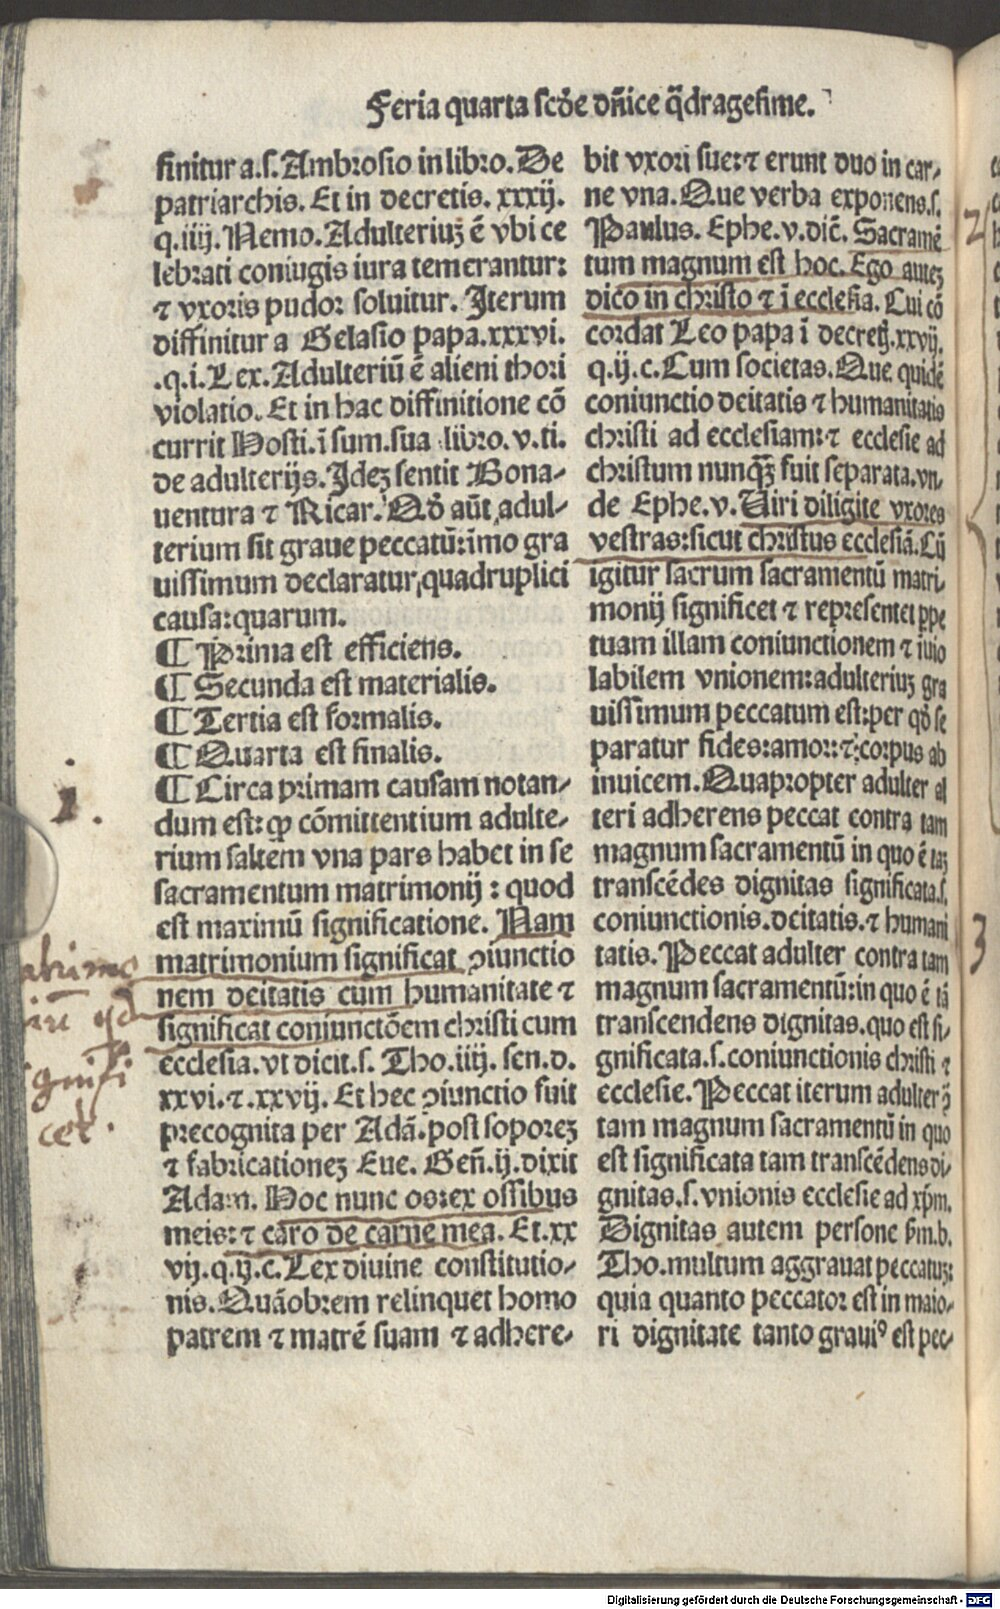 Feria quarta scďe dñice q̃dragesime.
finitur a.s. Ambrosio in libro. De
patriarchis. Et in decretis. xxxij.
q.iiij. Nemo. Adulteriuȝ ē vbi ce
lebrati coniugis iura temerantur:
⁊ vxoris pudor soluitur. Iterum
diffinitur a Gelasio papa.xxxvi.
.q.i.Lex. Adulteriū ē alieni thori
violatio. Et in hac diffinitione cō
currit Hosti.ī sum.sua libro.v.ti.
de adulterijs. Ideȝ sentit Bona-
uentura ⁊ Ricar. Qď aūt adul-
terium sit graue peccatū:īmo gra
uissimum declaratur,quadruplici
causa:quarum.
¶ Prima est efficiens.
¶ Secunda est materialis.
¶ Tertia est formalis.
¶ Quarta est finalis.
¶ Circa primam causam notan-
dum est:ꝙ cōmittentium adulte-
rium saltem vna pars habet in se
sacramentum matrimonij : quod
est maximū significatione. Nam
matrimonium significat ↄiunctio
nem deitatis cum humanitate ⁊
significat coniunctōem christi cum
ecclesia. vt dicit.s. Tho.iiij. sen.d.
xxvi.⁊.xxvij. Et hec ↄiunctio fuit
precognita per Adā. post soporeȝ
⁊ fabricationeȝ Eue. Geñ.ij.dixit
Adam. Hoc nunc os:ex ossibus
meis:⁊ caro de carne mea. Et.xx
vij.q.ij.c.Lex diuine constitutio-
nis. Quāobrem relinquet homo
patrem ⁊ matrē suam ⁊ adhere-
bit vxori sue:⁊ erunt duo in car-
ne vna. Que verba exponens.s.
Paulus. Ephe.v.dic̄. Sacramē
tum magnum est hoc. Ego auteȝ
dico in christo ⁊ ī ecclesia. Cui cō
cordat Leo papa ī decret̛.xxvij.
q.ij.c.Cum societas. Que quidē
coniunctio deitatis ⁊ humanitatis
christi ad ecclesiam:⁊ ecclesie ad
christum nunq̄ȝ fuit separata.vn-
de Ephe.v. Uiri diligite vxores
vestras:sicut christus ecclesiā. Cū
igitur sacrum sacramentū matri-
monij significet ⁊ representet ꝑpe
tuam illam coniunctionem ⁊ iuio
labilem vnionem:adulteriuȝ gra
uissimum peccatum est:per qď se
paratur fides:amor:⁊ corpus ab
inuicem. Quapropter adulter al
teri adherens peccat contra tam
magnum sacramentū in quo ē taȝ
transcēdes dignitas significata.s.
coniunctionis.deitatis.⁊ humani
tatis. Peccat adulter contra tam
magnum sacramentū:in quo ē tā
transcendens dignitas.quo est si-
gnificata.s.coniunctionis christi ⁊
ecclesie. Peccat iterum adulter ↄ̄
tam magnum sacramentū in quo
est significata tam transcēdens di-
gnitas.s.vnionis ecclesie ad xp̄m.
Dignitas autem persone ẜm.b.
Tho.multum aggrauat peccatuȝ:
quia quanto peccator est in maio-
ri dignitate tanto graui⁹ est pec-
1.
qd
signifi
cet.
2
3
Digitalisierung gefördert durch die Deutsche Forschungsgemeinschaft - DFG